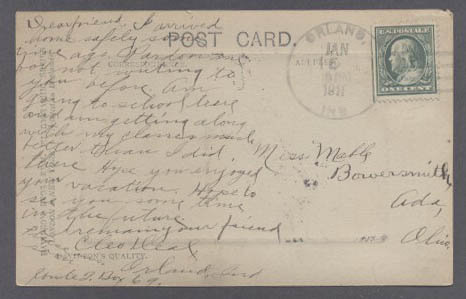 Dear friend, I arrived
home safely some
time ago. Pardon me
for not writing to
you before. Am
going to school here
and am getting along
with my classes much
better than I did
there. Hope you enjoyed
your vacation. Hope to
see you some time
in the future
I remain your friend
Cleo Deal
Orland, Ind
Route 2. Box 69.
POST CARD.
ORLAND,
JAN
5
1911
IND
ONE CENT
Miss Melle
Bowersmith,
Ada,
Ohio
QUALITY.